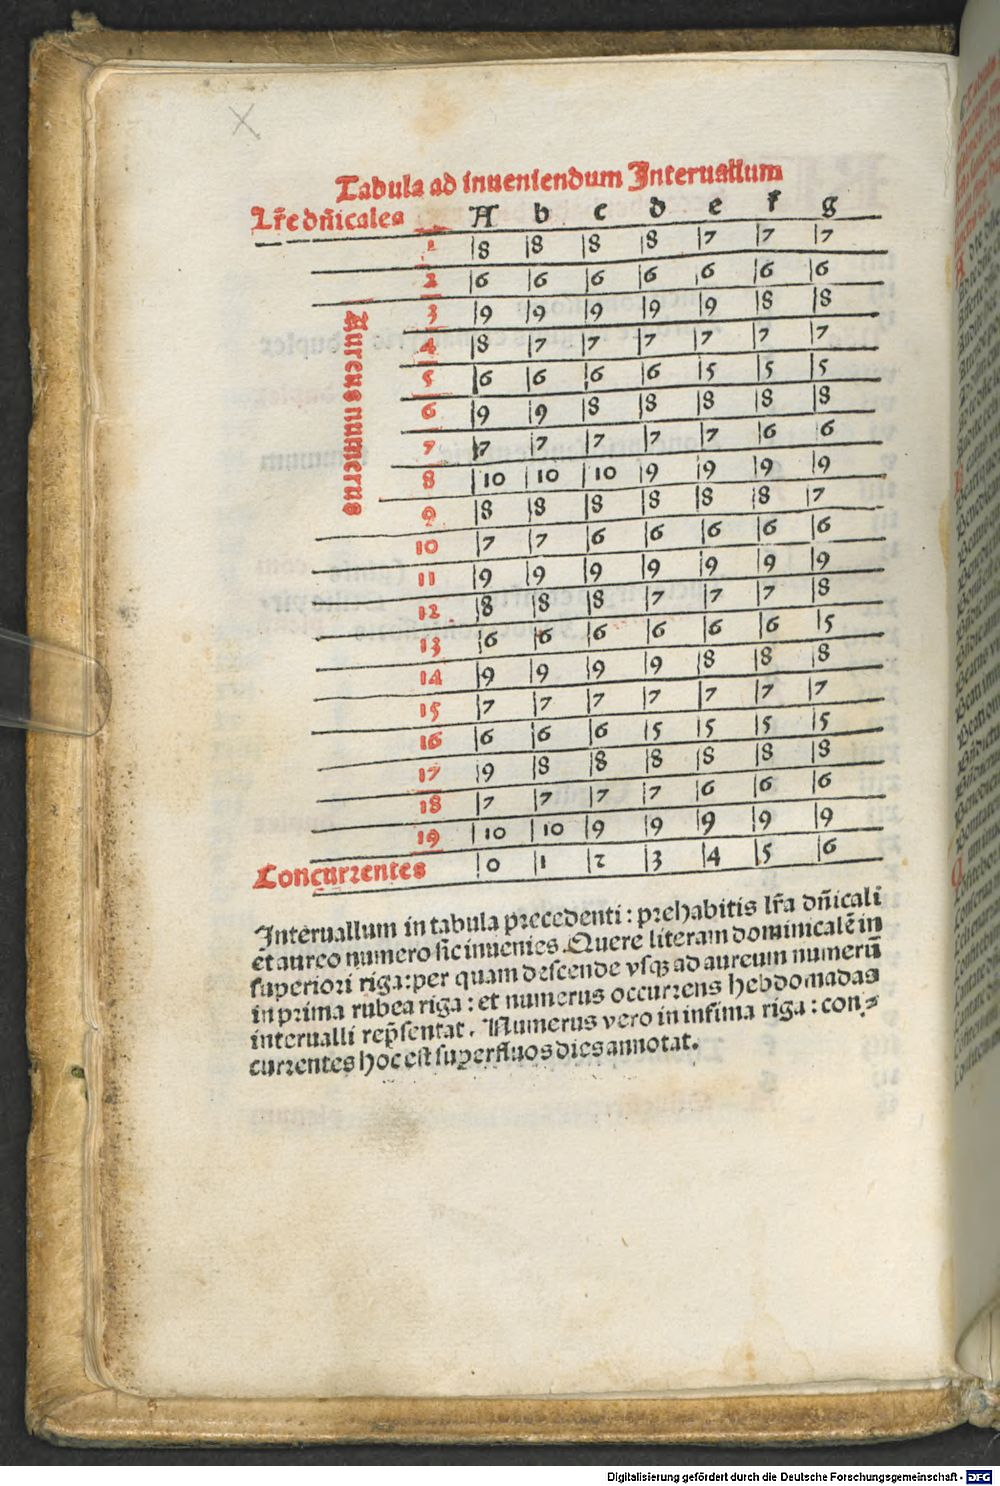 Tabula ad inueniendum Interuallum
Lr̄e dn̄icales A b c d e f g
1 8 8 8 8 7 7 7
2 6 6 6 6 6 6 6
3 9 9 9 9 9 8 8
4 8 7 7 7 7 7 7
5 6 6 6 6 5 5 5
6 9 9 8 8 8 8 8
7 7 7 7 7 7 6 6
8 10 10 10 9 9 9 9
9 8 8 8 8 8 8 7
10 7 7 6 6 6 6 6
11 9 9 9 9 9 9 9
12 8 8 8 7 7 7 8
13 6 6 6 6 6 6 5
14 9 9 9 9 8 8 8
15 7 7 7 7 7 7 7
16 6 6 6 5 5 5 5
17 9 8 8 8 8 8 8
18 7 7 7 7 6 6 6
19 10 10 9 9 9 9 9
Aureus numerus
Concurrentes 0 1 2 3 4 5 6
Interuallum in tabula precedenti : prehabitis lr̄a dn̄icali
et aureo numero sic inuenies . Quere literam dominicalē in
superiori riga : per quam descende vsqꝫ ad aureum numerū
in prima rubea riga : et numerus occurrens hebdomadas
interualli rep̄sentat . Numerus vero in infima riga : con⸗
currentes hoc est superfluos dies annotat .
Digitalisierung gefördert durch die Deutsche Forschungsgemeinschaft - DFG